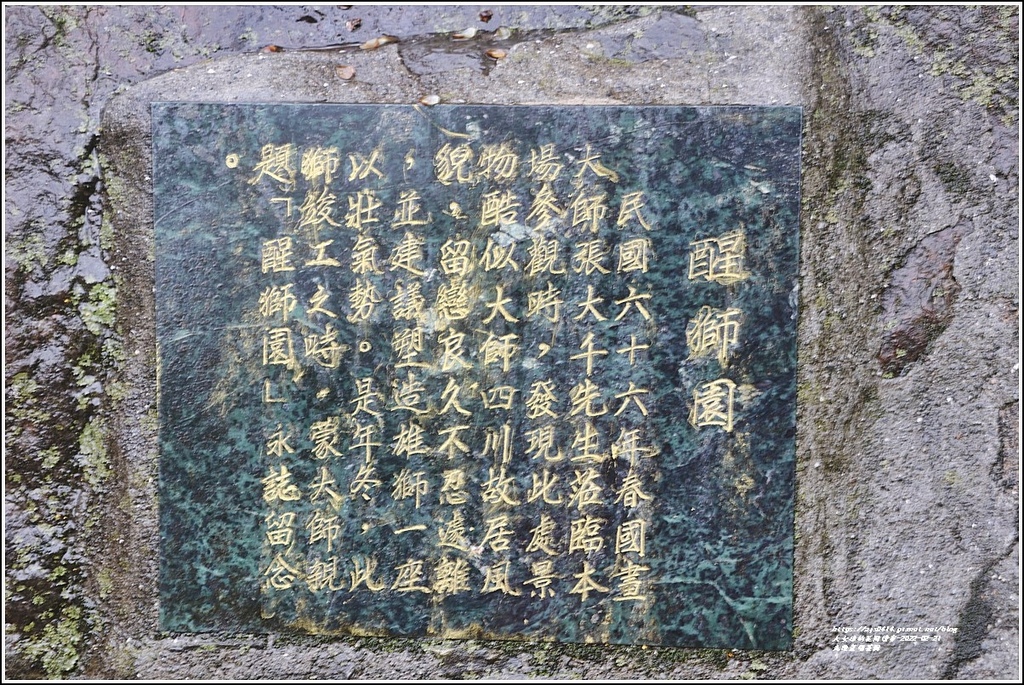 醒獅園
民國六十六年春國畫
大師張大千先生蒞臨本
場參觀時，發現此處景
物酷似大師四川故居風
貌，留戀良久不忍遠離
，並建議塑造雄獅一座
以壯氣勢。是年冬，此
獅竣工之時，蒙大師親
題「醒獅園」永誌留念
。